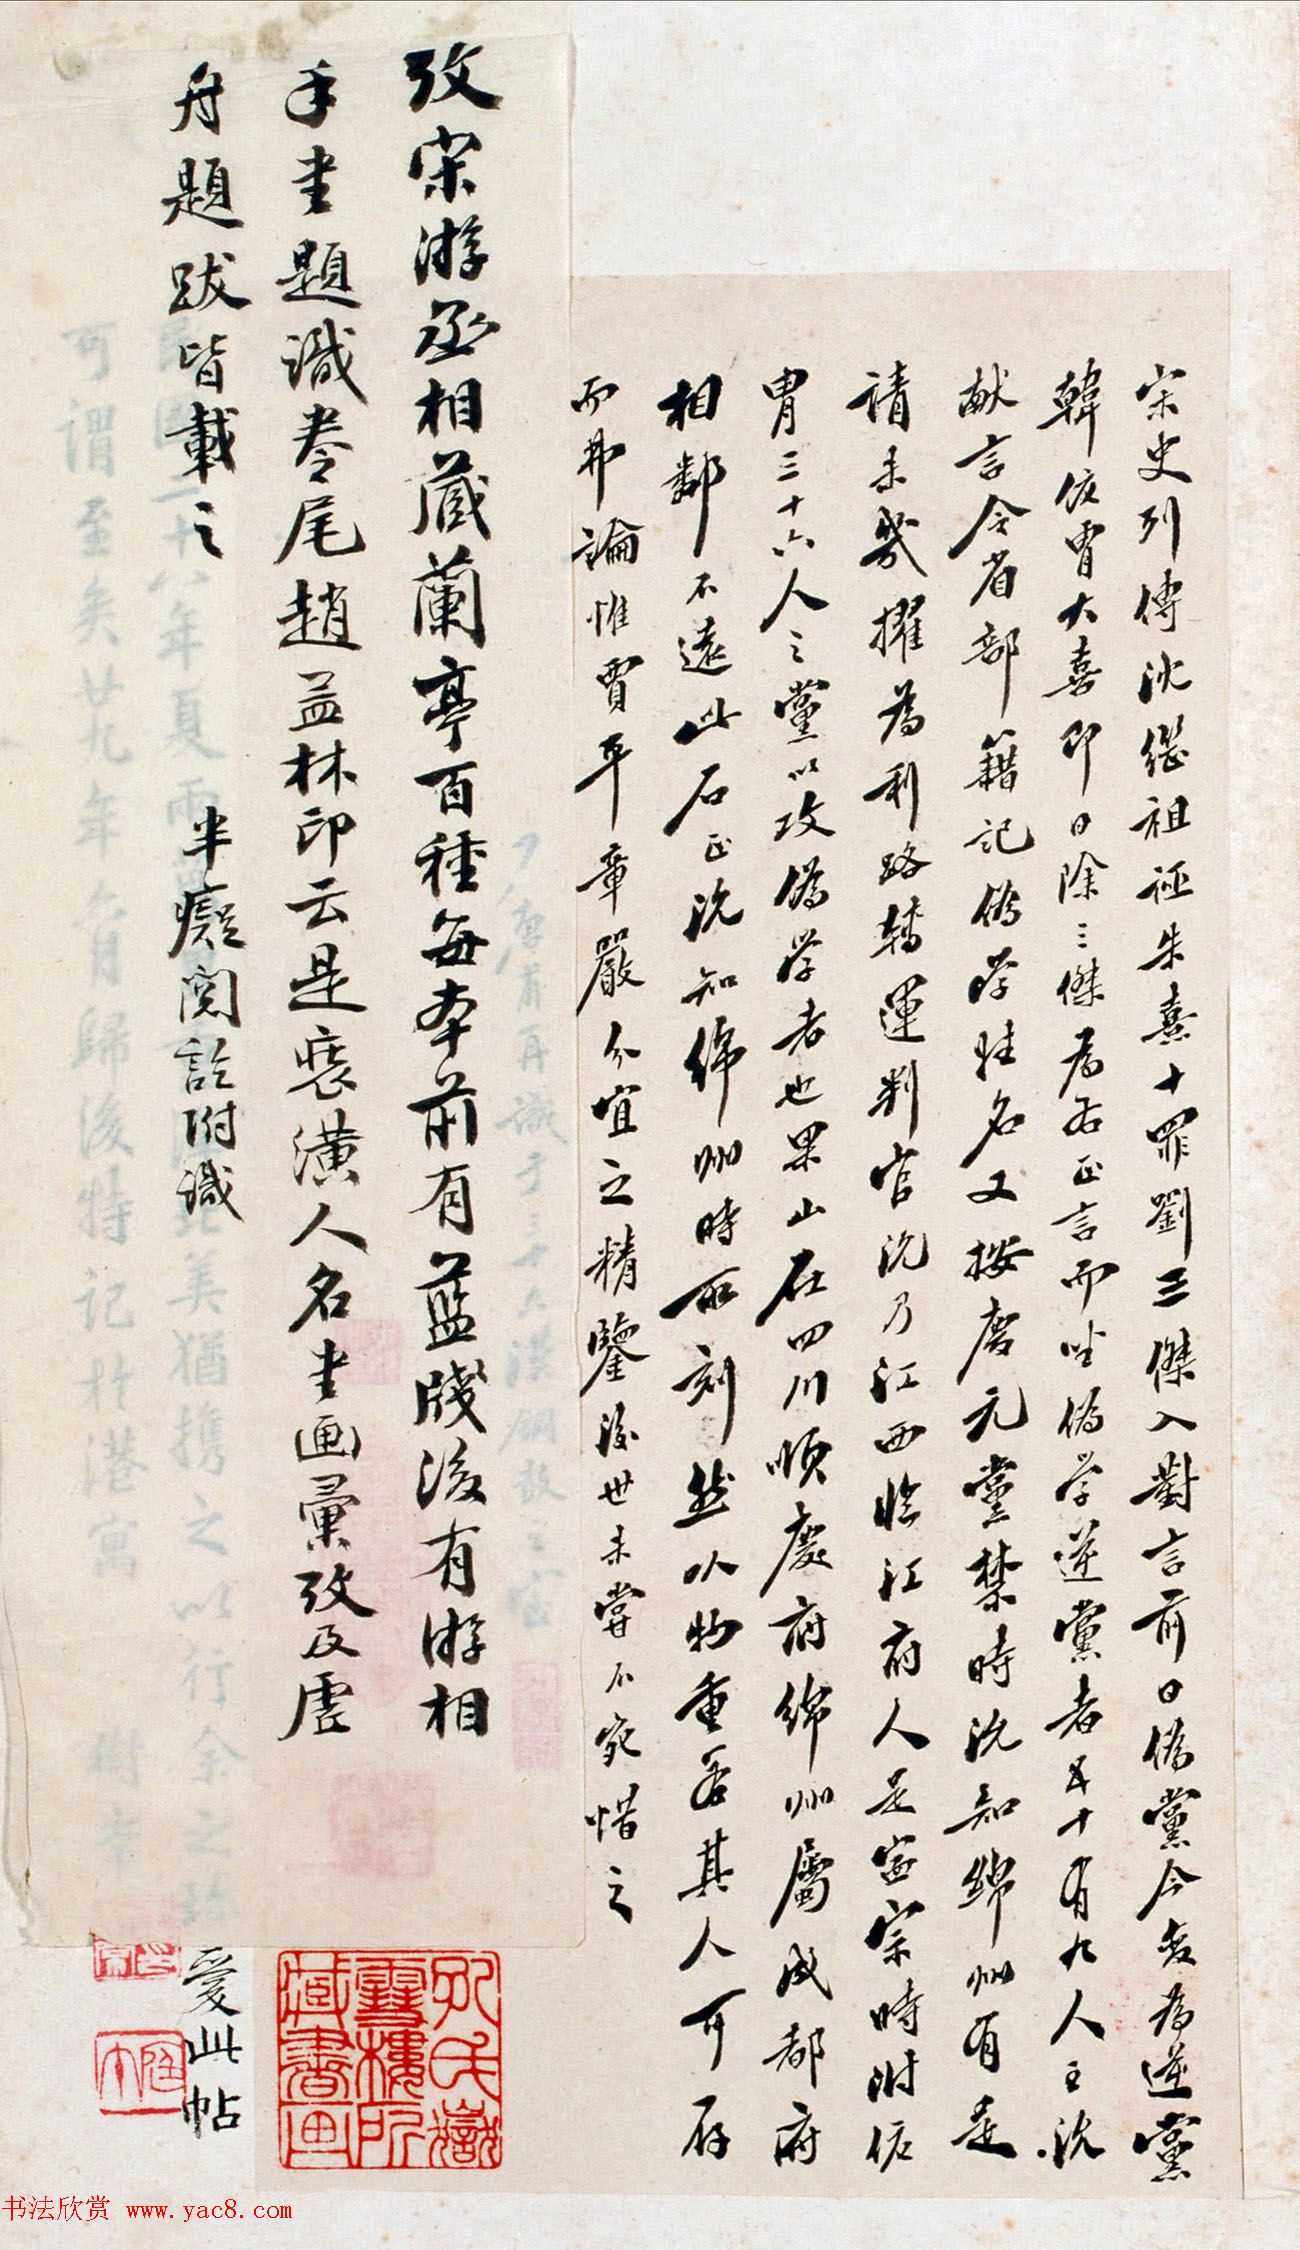 宋史列傳沈繼祖誣朱熹十罪劉三傑入對言前日偽黨今變為逆黨
韓侂胄大喜即日除三傑為右正言而坐偽学逆黨者五十有九人王沇
献言令省部籍記偽学姓名又按慶元黨禁時沇知綿州有是
請未幾擢為利路轉運判官沇乃江西臨江府人是寧宗時附侂
胄三十六人之黨以攻偽学者也果山在四川順慶府綿州屬成都府
相鄰不遠此石正沇知綿州時所刻然以物重若其人可存
而弗論惟賈平章嚴分宜之精鑒後世未嘗不宛惜之
攷宋游丞相藏蘭亭百種每本前有藍牋後有游相
手書題識卷尾趙益林印云是裝潢人名書画彙攷及虛
舟題跋皆載之
半癡閱訖附識
愛此帖
孔氏嶽雪樓所藏書画
可謂至矣廿九年六月歸後特記於港寓
书法欣赏 www.yac8.com